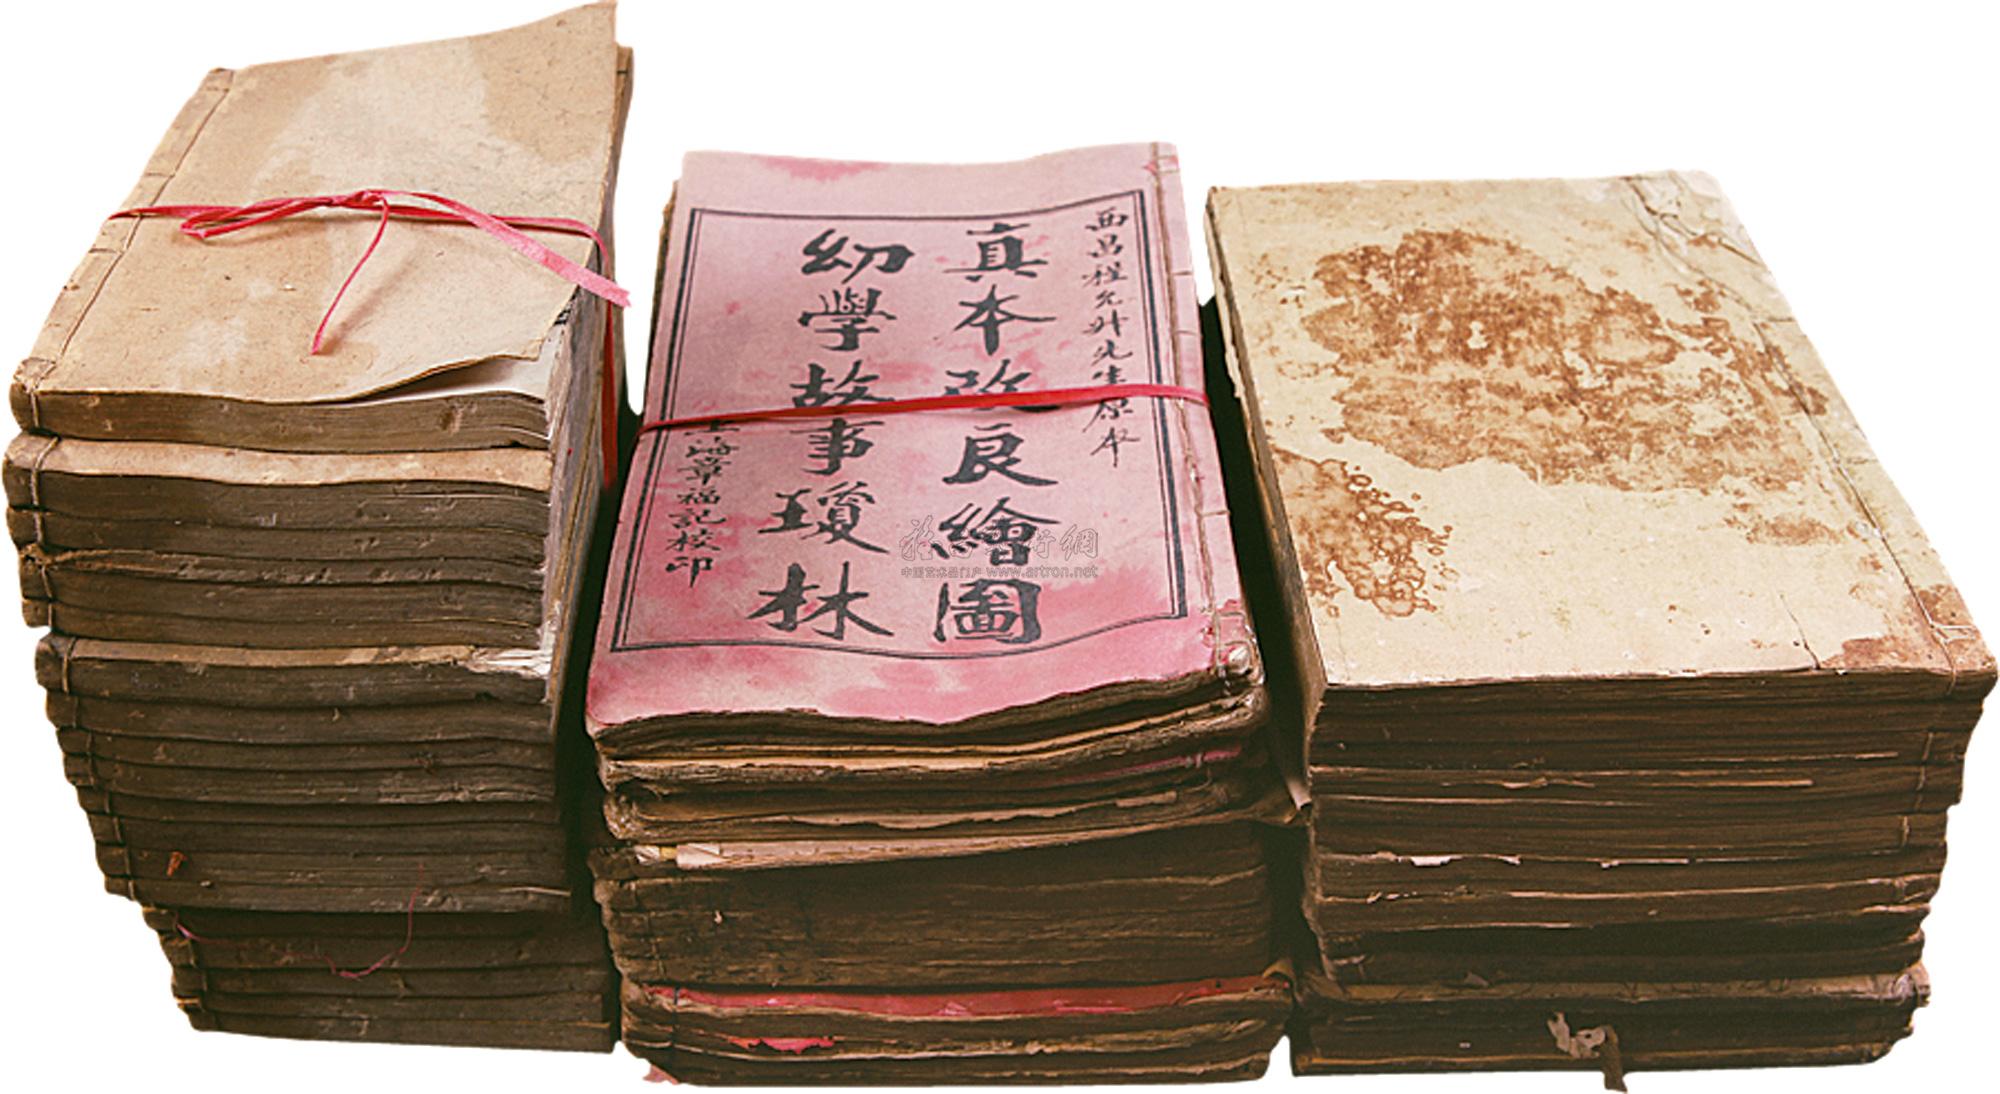 西昌程允升先生原本
真本改良繪圖
幼學故事瓊林
上海章福記校印
中国艺术品门户 www.artron.net